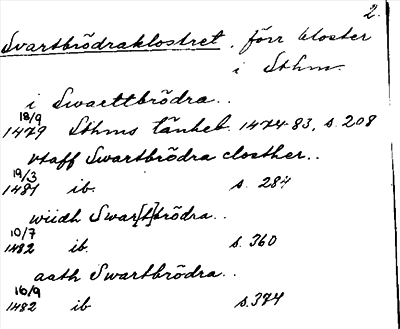 2.
Svartbrödraklostret, förr kloster
i Sthm.
i Swarttbrödra..
18/9
1479 Sthms tänkeb. 1474-83, s. 208
vtaff Swartbrödra closther..
19/3
1481 ib. s. 284
wiidh Swar[t]brödra..
10/7
1482 ib. s. 360
aath Swartbrödra..
16/9
1482 ib s. 374